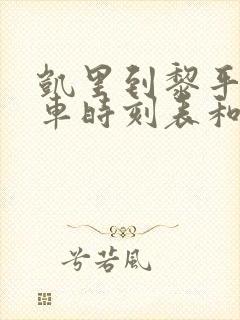 凯里到黎平
车时刻表和
兮若风